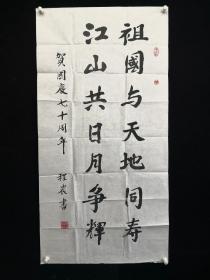 祖國与天地同寿
江山共日月争輝
賀国慶七十周年
程宸書